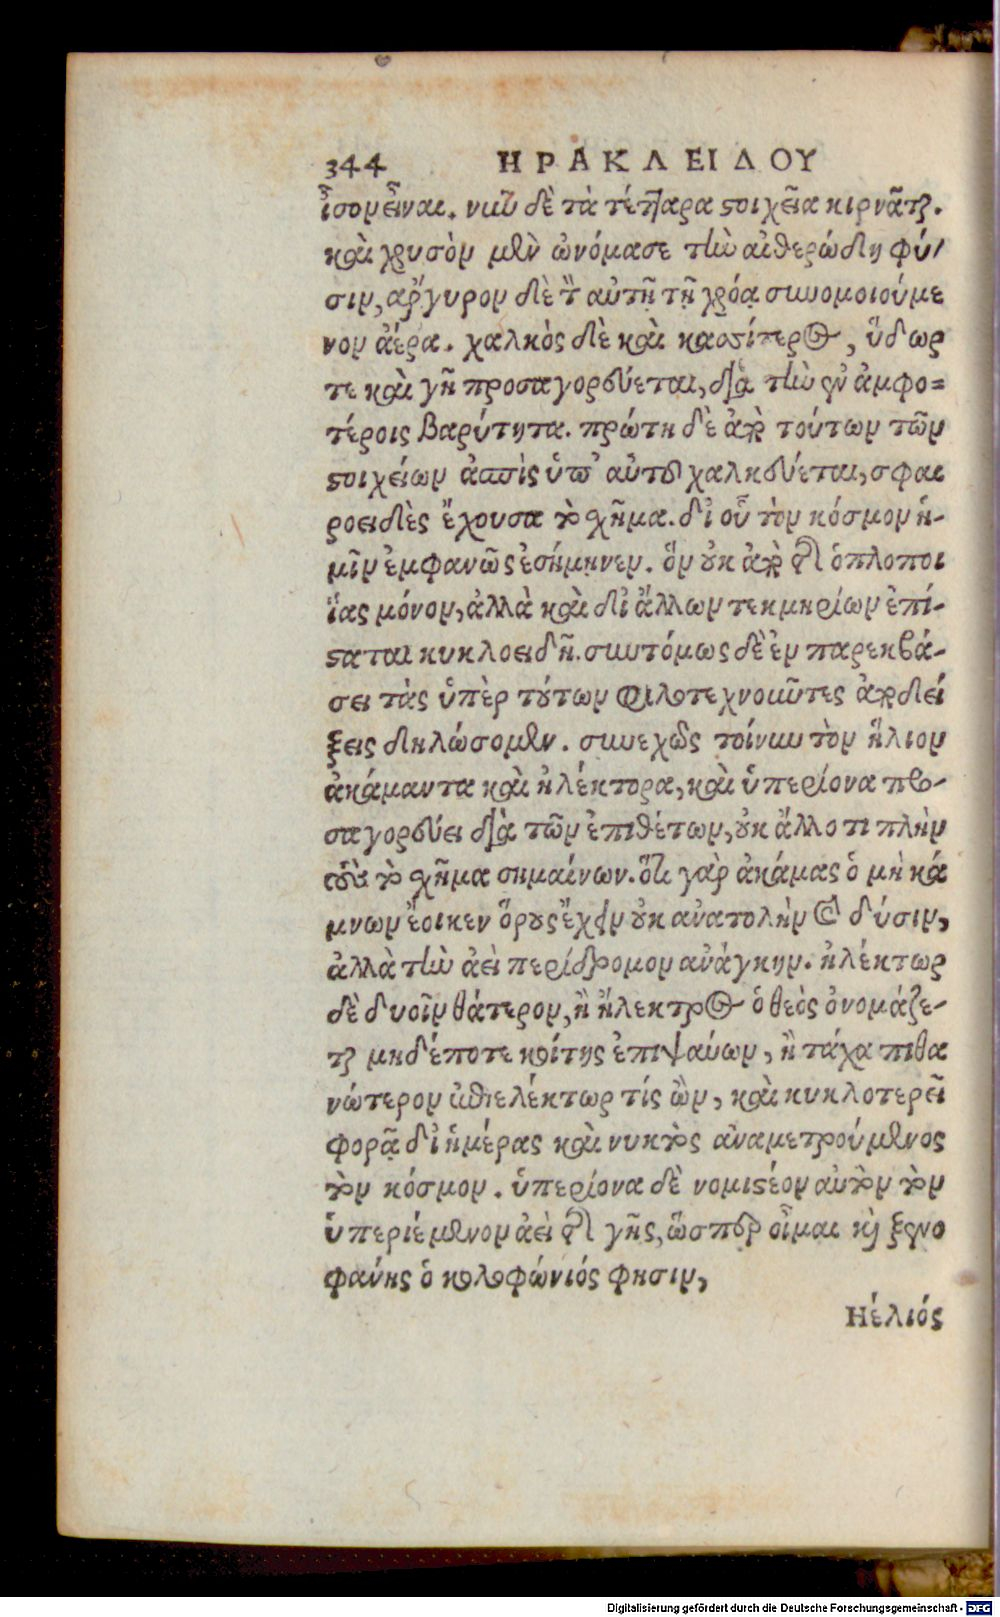 344 ΗΡΑΚΛΕΙΔΟΥ
ἴσομεἶναι. νῦν δὲ τὰ τέτταρα στοιχεῖα κιρνᾶται.
καὶ χρυσὸν μὲν ὠνόμασε τὴν αἰθερώδη φύ-
σιν, ἄργυρον δὲ τὸν αὐτῇ τῇ χρόᾳ συνομοιούμε
νον ἀέρα. χαλκὸς δὲ καὶ κασσίτερος, ὕδωρ
τε καὶ γῆ προσαγορεύεται, διὰ τὴν ἐν ἀμφο=
τέροις βαρύτητα. πρώτη δὲ ἀπὸ τούτων τῶν
στοιχείων ἀσπὶς ὑπ' αὐτοῦ χαλκεύεται, σφαι
ροειδὲς ἔχουσα τὸ σχῆμα. δι' οὗ τὸν κόσμον ἡ-
μῖν ἐμφανῶς ἐσήμηνεν. ὃν οὐκ ἀπὸ τῆς ὁπλοποι
ΐας μόνον, ἀλλὰ καὶ δι' ἄλλων τεκμηρίων ἐπί-
σταται κυκλοειδῆ. συντόμως δὲ ἐν παρεκβά-
σει τὰς ὑπὲρ τούτων φιλοτεχνοῦντες ἀποδεί
ξεις δηλώσομεν. συνεχῶς τοίνυν τὸν ἥλιον
ἀκάμαντα καὶ ἠλέκτορα, καὶ ὑπερίονα προ-
σαγορεύει διὰ τῶν ἐπιθέτων, οὐκ ἄλλο τι πλὴν
τοῦτο τὸ σχῆμα σημαίνων. ὅτι γὰρ ἀκάμας ὁ μὴ κά
μνων ἔοικεν ὅρους ἔχειν οὐκ ἀνατολὴν καὶ δύσιν,
ἀλλὰ τὴν ἀεὶ περίδρομον ἀνάγκην. ἠλέκτωρ
δὲ δυοῖν θάτερον, ἢ ἤλεκτρος ὁ θεὸς ὀνομάζε-
ται μηδέποτε κοίτης ἐπιψαύων, ἢ τάχα πιθα
νώτερον ἡθιελέκτωρ τίς ὢν, καὶ κυκλοτερεῖ
φορᾷ δι' ἡμέρας καὶ νυκτὸς ἀναμετρούμενος
τὸν κόσμον. ὑπερίονα δὲ νομιστέον αὐτὸν τὸν
ὑπεριέμενον ἀεὶ τῆς γῆς, ὥσπερ οἶμαι καὶ ξενο
φάνης ὁ κολοφώνιός φησιν,
Ηέλιός
Digitalisierung gefördert durch die Deutsche Forschungsgemeinschaft - DFG